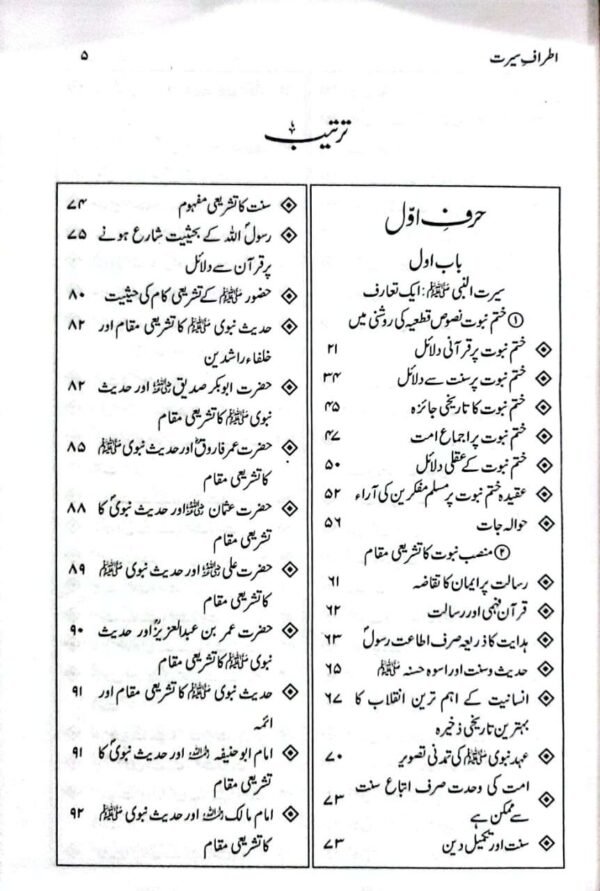 اطرافِ سیرت ۵
ترتیب
حرفِ اوّل
باب اول
سیرت النبی ﷺ: ایک تعارف
① ختم نبوت نصوص قطعیہ کی روشنی میں
ختم نبوت پر قرآنی دلائل ۲۱
ختم نبوت پر سنت سے دلائل ۳۴
ختم نبوت کا تاریخی جائزہ ۴۵
ختم نبوت پر اجماع امت ۴۷
ختم نبوت کے عقلی دلائل ۵۰
عقیدہ ختم نبوت پر مسلم مفکرین کی آراء ۵۲
حوالہ جات ۵۶
② منصب نبوت کا تشریعی مقام
رسالت پر ایمان کا تقاضہ ۶۱
قرآن فہمی اور رسالت ۶۲
ہدایت کا ذریعہ صرف اطاعت رسولؐ ۶۳
حدیث و سنت اور اسوہ حسنہ ﷺ ۶۵
انسانیت کے اہم ترین انقلاب کا ۶۷
بہترین تاریخی ذخیرہ
عہد نبوی ﷺ کی تمدنی تصویر ۷۰
امت کی وحدت صرف اتباع سنت ۷۳
سے ممکن ہے
سنت اور تکمیل دین ۷۳
سنت کا تشریعی مفہوم ۷۴
رسولؐ اللہ کے بحیثیت شارع ہونے ۷۵
پر قرآن سے دلائل
حضور ﷺ کے تشریعی کام کی حیثیت ۸۰
حدیث نبوی ﷺ کا تشریعی مقام اور ۸۲
خلفاء راشدین
حضرت ابوبکر صدیق ؓ اور حدیث ۸۲
نبوی ﷺ کا تشریعی مقام
حضرت عمر فاروقؓ اور حدیث نبوی ﷺ ۸۵
کا تشریعی مقام
حضرت عثمان ؓ اور حدیث نبویؐ کا ۸۸
تشریعی مقام
حضرت علی ؓ اور حدیث نبوی ﷺ ۸۹
کا تشریعی مقام
حضرت عمر بن عبدالعزیزؒ اور حدیث ۹۰
نبوی ﷺ کا تشریعی مقام
حدیث نبوی ﷺ کا تشریعی مقام اور ۹۱
ائمہ
امام ابوحنیفہ ؒ اور حدیث نبویؐ کا ۹۱
تشریعی مقام
امام مالک ؒ اور حدیث نبوی ﷺ ۹۲
کا تشریعی مقام